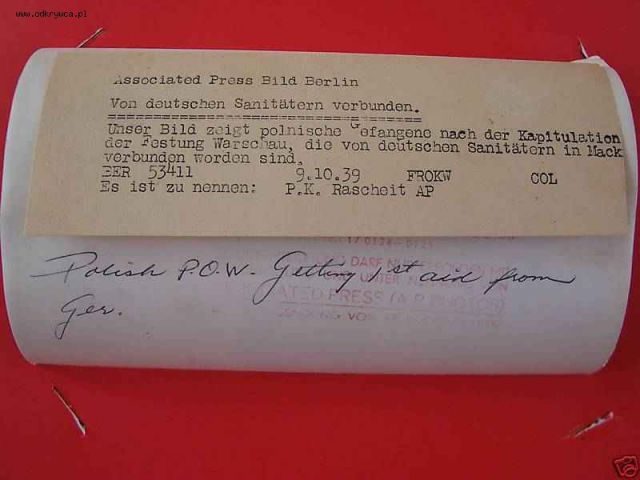 www.odkrywca.pl
Associated Press Bild Berlin
Von deutschen Sanitätern verbunden.
Unser Bild zeigt polnische Gefangene nach der Kapitulation
der Festung Warschau, die von deutschen Sanitätern in Mack
verbunden worden sind.
BER 53411 9.10.39 FROKW COL
Es ist zu nennen: P.K. Rascheit AP
DARF NUR
Polish P.O.W. Getting 1st aid from
UNTER
ATED PRESS (A.P. PHOTOS)
Ger.